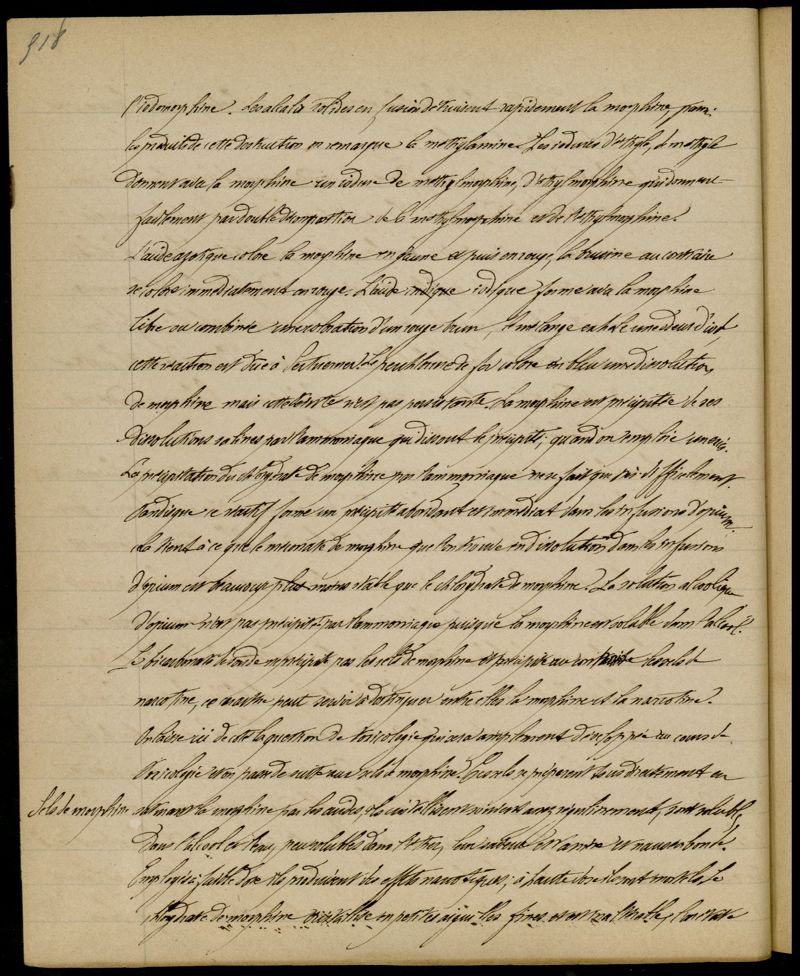 318
l'iodomorphine. Les alcalis solides en fusion détruisent rapidement la morphine, parmi
les produits de cette destruction on remarque la méthylamine. Les iodures d'éthyle, de méthyle
donnent avec la morphine un iodure de méthylmorphine, d'éthylmorphine qui donnent
facilement par double décomposition de la méthylmorphine et de l'éthylmorphine.
L'acide azotique colore la morphine en jaune et puis en rouge, la brucine au contraire
se colore immédiatement en rouge. L'acide iodique forme avec la morphine
libre ou combinée une coloration d'un rouge brun, le mélange exhale une odeur d'iode,
cette réaction est due à Sertuerner. Le perchlorure de fer colore en bleu une dissolution
de morphine mais cette teinte n'est pas persistante. La morphine est précipitée de ses
dissolutions salines par l'ammoniaque qui dissout le précipité, quand on emploie un excès.
La précipitation du chlorhydrate de morphine par l'ammoniaque ne se fait que très difficilement.
tandis que ce réactif forme un précipité abondant et immédiat dans les infusions d'opium.
Cela tient à ce que le méconate de morphine que l'on trouve en dissolution dans les infusions
d'opium est beaucoup moins stable que le chlorhydrate de morphine. La solution alcoolique
d'opium n'est pas précipitée par l'ammoniaque puisque la morphine est soluble dans l'alcool.
Le bicarbonate de soude ne précipite pas les sels de morphine et précipite au contraire les sels de
narcotine, ce caractère peut servir à distinguer entre elles la morphine et la narcotine.
On laisse ici de côté la question de toxicologie qui sera amplement développée au cours de
Toxicologie et on passe de suite aux sels de morphine. Ces sels se préparent tous directement en
Sels de morphine
saturant la morphine par les acides, ils cristallisent souvent assez régulièrement, sont solubles
dans l'alcool et l'eau, peu solubles dans l'éther, leur saveur est amère et nauséabonde.
Employés à faible dose ils produisent des effets narcotiques; à haute dose ils sont mortels. Le
chlorhydrate de morphine cristallise en petites aiguilles fines et est inaltérable, l'acétate